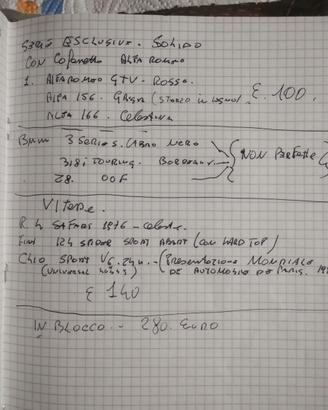 SERIE ESCLUSIVE. SOLIDO
CON Cofanetto ALFA ROMEO
1. ALFA ROMEO GTV - ROSSO.
ALFA 156. GRIGIA (STERZO in LEGNO). £. 100.
ALFA 166. Celestina
Bmw 3 SERIE S. CABRIO NERO
318i TOURING. BORDEAUX. NON PERFETTE
Z8. OOF
VITESSE.
R. 4 SAFARI 1976 - celeste.
Fiat 124 SPIDER SPORT ABART (con HARD TOP)
Clio SPORT V6. 24V. - (PRESENTAZIONE MONDIALE
(UNIVERSAL HOBBIES) DE AUTOMOBILE DE PARIS.
£ 140
IN BLOCCO. - 280. EURO